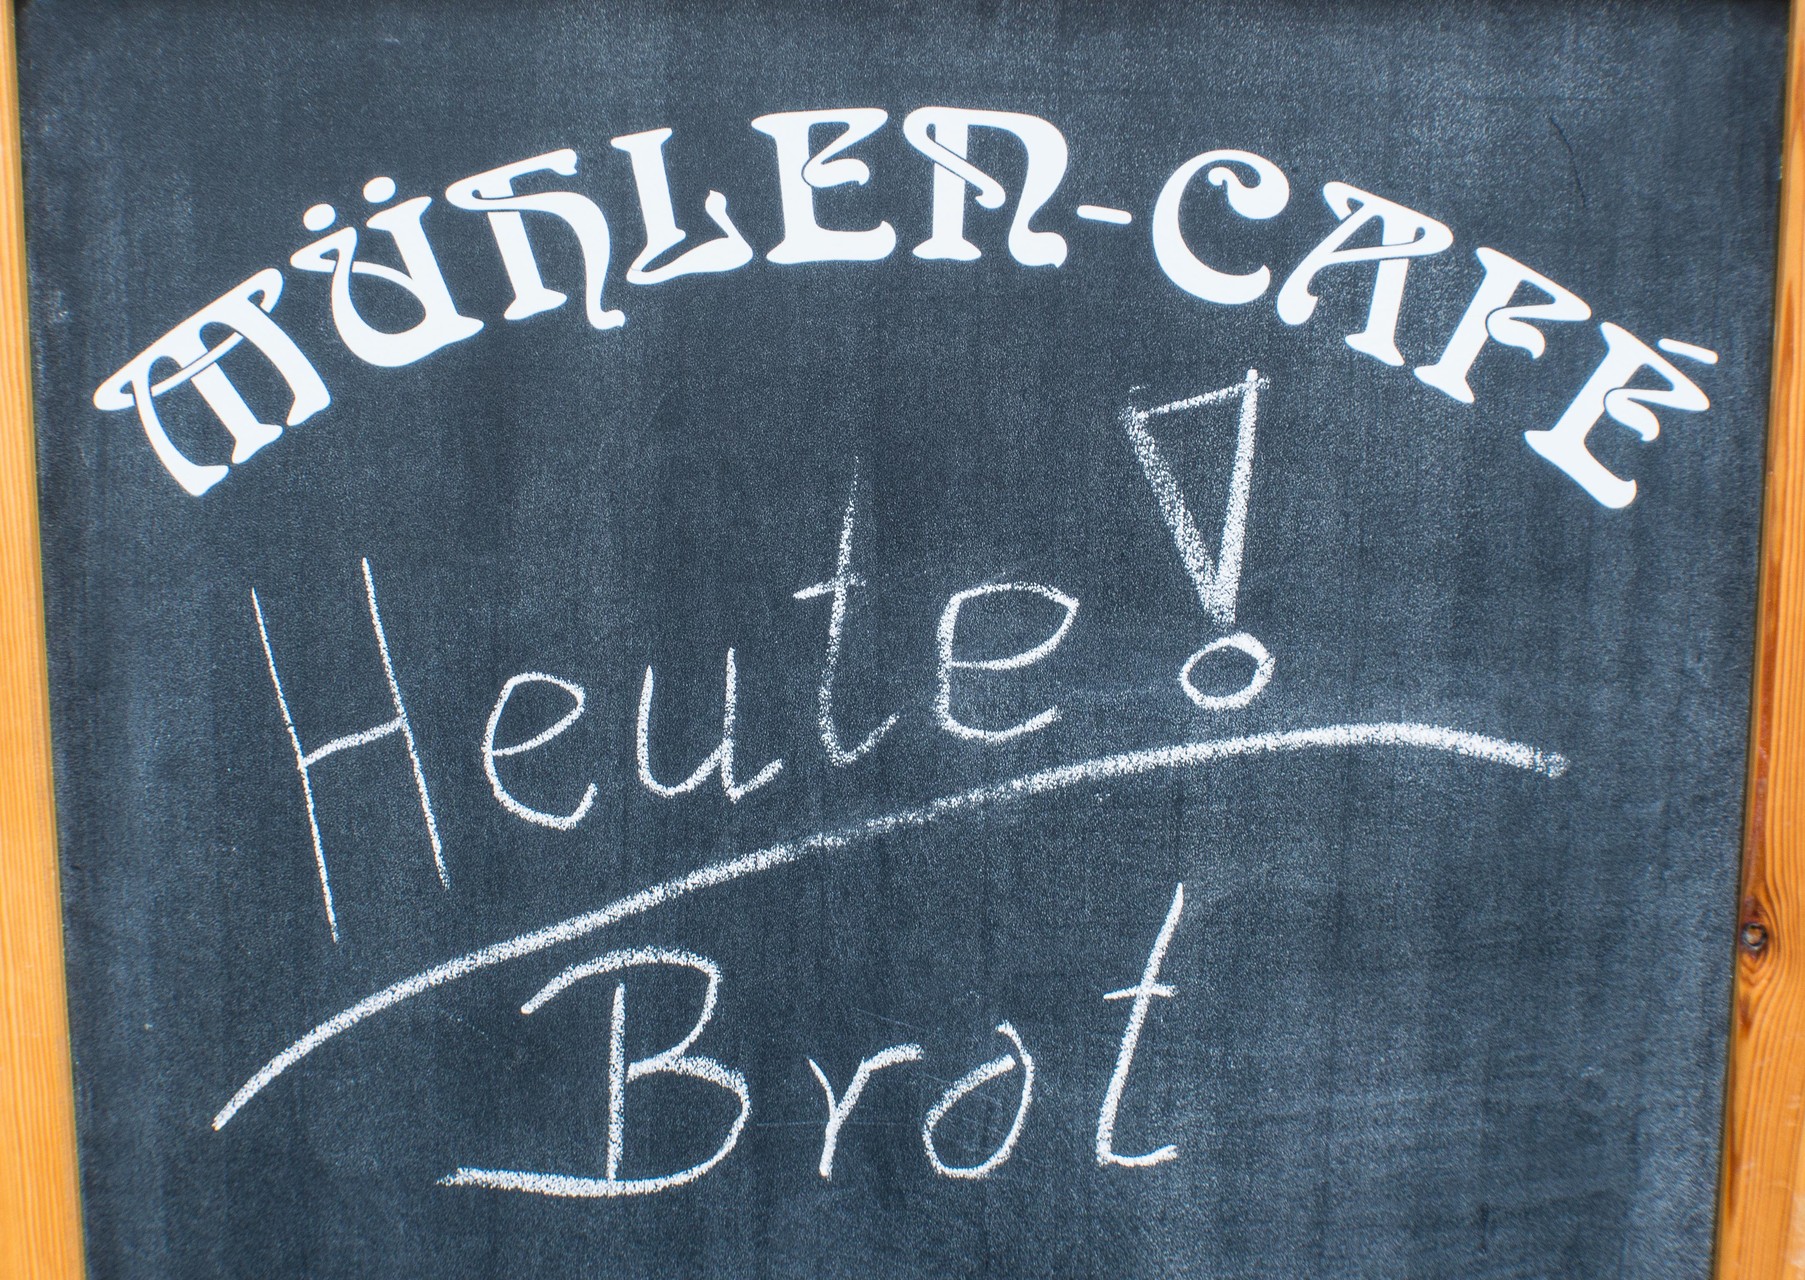 MÜHLEN-CAFÉ
Heute!
Brot